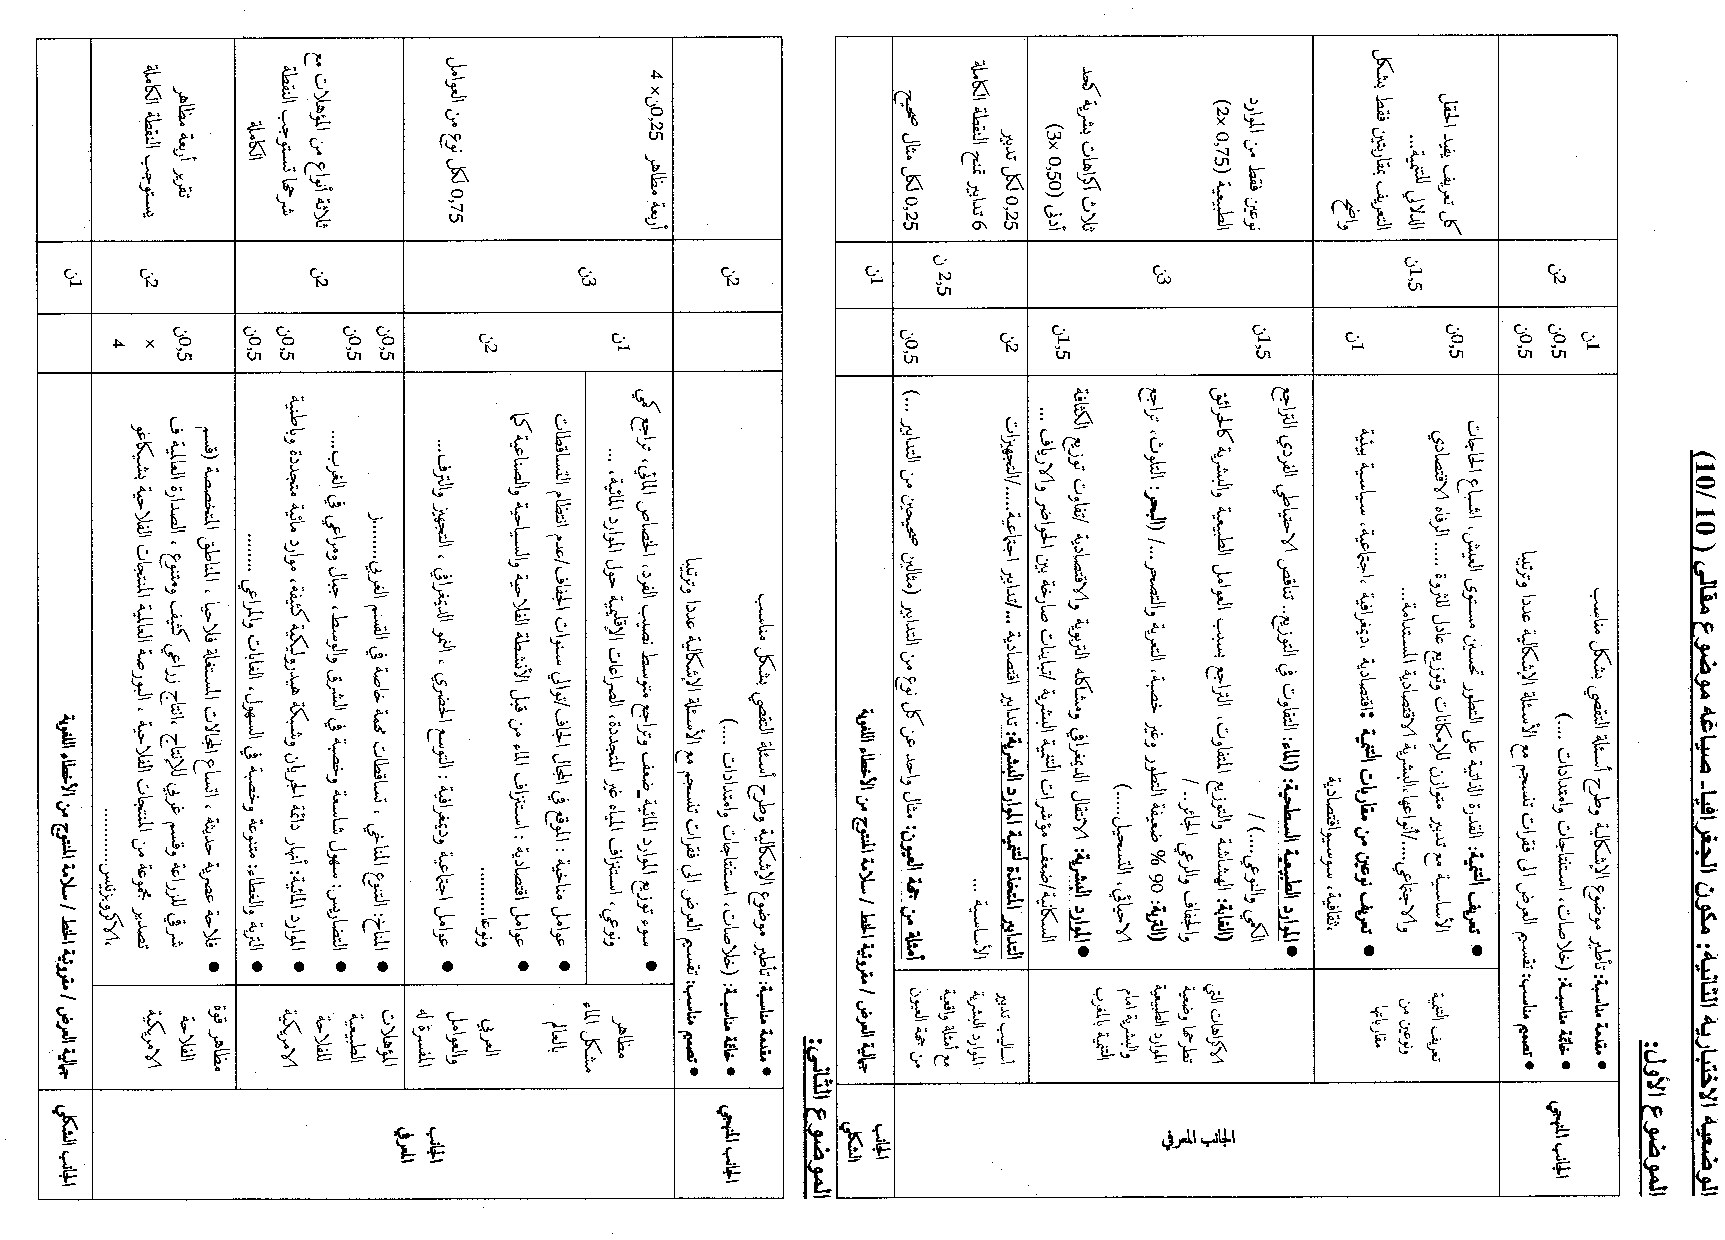 الوضعية الاختبارية الثانية: مكون الجغرافيا_ صياغة موضوع مقالي ( 10 /10)
الموضوع الأول:
الجانب المنهجي
● مقدمة مناسبة: تأطير موضوع الإشكالية وطرح أسئلة التقصي بشكل مناسب
● خاتمة مناسبة: (خلاصات، استنتاجات وامتدادات .....)
● تصميم مناسب: تقسيم العرض الى فقرات تنسجم مع الأسئلة الإشكالية عددا وترتيبا
1ن
0,5ن
0,5ن
2ن
الجانب المعرفي
تعريف التنمية
ونوعين من
مقارباتها
● تعريف التنمية: القدرة الذاتية على التطور تحسين مستوى العيش، اشباع الحاجات
الأساسية مع تدبير متوازن للإمكانات وتوزيع عادل للثروة ..... الرفاه الاقتصادي
والاجتماعي..../أنواعها:البشرية الاقتصادية المستدامة...
● تعريف نوعين من مقاربات التنمية :اقتصادية ،ديمغرافية ،اجتماعية، سياسية بيئية
،ثقافية، سوسيواقتصادية
0,5ن
1ن
1,5ن
كل تعريف يفيد الحقل
الدلالي للتنمية...
التعريف بمقاربتين فقط بشكل
واضح
الاكراهات التي
تطرحها وضعية
الموارد الطبيعية
والبشرية امام
التنمية بالمغرب
●الموارد الطبيعية السطحية: (الماء: التفاوت في التوزيع.. تناقص الاحتياطي الفردي التراجع
الكمي والنوعي....) /
(الغابة: الهشاشة والتوزيع المتفاوت، التراجع بسبب العوامل الطبيعية والبشرية كالحرائق
والجفاف والرعي الجائر../
(التربة: 90 % ضعيفة التطور وغير خصبة، التعرية والتصحر.../ (البحر: التلوث، تراجع
الاحيائي، التسحيل.....)
●الموارد البشرية: الانتقال الديمغرافي ومشكله التربوية والاقتصادية /تفاوت توزيع الكثافة
السكانية/ضعف مؤشرات التنمية البشرية /تباينات صارخة بين الحواضر والارياف ...
1,5ن
1,5ن
3ن
نوعين فقط من الموارد
الطبيعية (0,75 ×2)
ثلاث اكراهات بشرية كحد
أدنى (0,50 ×3)
أساليب تدبير
الموارد البشرية
مع أمثلة واقعية
من جهة العيون
التدابير المتخذة لتنمية الموارد البشرية: تدابير اقتصادية .../تدابير اجتماعية..../التجهيزات
الأساسية ...
أمثلة من جهة العيون: مثال واحد عن كل نوع من التدابير (مثالين صحيحين من التدابير ...)
2ن
0,5ن
2,5 ن
0,25 لكل تدبير
6 تدابير تمنح النقطة الكاملة
0,25 لكل مثال صحيح
الجانب
الشكلي
جمالية العرض / مقروئية الخط / سلامة المنتوج من الأخطاء اللغوية
1ن
الموضوع الثاني:
الجانب المنهجي
● مقدمة مناسبة: تأطير موضوع الإشكالية وطرح أسئلة التقصي بشكل مناسب
● خاتمة مناسبة: (خلاصات، استنتاجات وامتدادات .....)
● تصميم مناسب: تقسيم العرض الى فقرات تنسجم مع الأسئلة الإشكالية عددا وترتيبا
2ن
الجانب
المعرفي
مظاهر
مشكل الماء
بالعالم
العربي
والعوامل
المفسرة له
● سوء توزيع الموارد المائية_ضعف وتراجع متوسط نصيب الفرد، الخصاص المائي، تراجع كمي
ونوعي، استنزاف المياه غير المتجددة، الصراعات الإقليمية حول الموارد المائية، ...
1ن
● عوامل مناخية : الموقع في المجال الجاف/توالي سنوات الجفاف/عدم انتظام التساقطات
● عوامل اقتصادية : استنزاف الماء من قبل الأنشطة الفلاحية والسياحية والصناعية كما
ونوعا..........
● عوامل اجتماعية وديمغرافية : التوسع الحضري ، النمو الديمغرافي ، التجهيز والترف...
2ن
3ن
أربعة مظاهر 0,25ن× 4
0,75 لكل نوع من العوامل
المؤهلات
الطبيعية
للفلاحة
الامريكية
● المناخ: التنوع المناخي ، تساقطات مهمة خاصة في القسم الغربي........ز
● التضاريس: سهول شاسعة وخصبة في الشرق والوسط، جبال ومراعي في الغرب.....
● الموارد المائية: أنهار دائمة الجريان وشبكة هيدرولوكية كثيفة، موارد مائية متجددة وباطنية
● التربة والغطاء: متنوعة وخصبة في السهول، الغابات والمراعي ........
0,5ن
0,5ن
0,5ن
0,5ن
2ن
ثلاثة أنواع من المؤهلات مع
شرحها تستوجب النقطة
الكاملة
مظاهر قوة
الفلاحة
الامريكية
● فلاحة عصرية حديثة ، اتساع المجالات المستغلة فلاحيا ، المناطق المتخصصة (قسم
شرقي للزراعة وقسم غربي للإنتاج ،انتاج زراعي كثيف ومتنوع ، الصدارة العالمية ف
تصدير مجموعة من المنتجات الفلاحية ، البورصة العالمية للمنتجات الفلاحية بشيكاغو
،الاكروبزنس..........
0,5ن
×
4
2ن
تقرير أربعة مظاهر
يستوجب النقطة الكاملة
الجانب الشكلي
جمالية العرض / مقروئية الخط / سلامة المنتوج من الأخطاء اللغوية
1ن